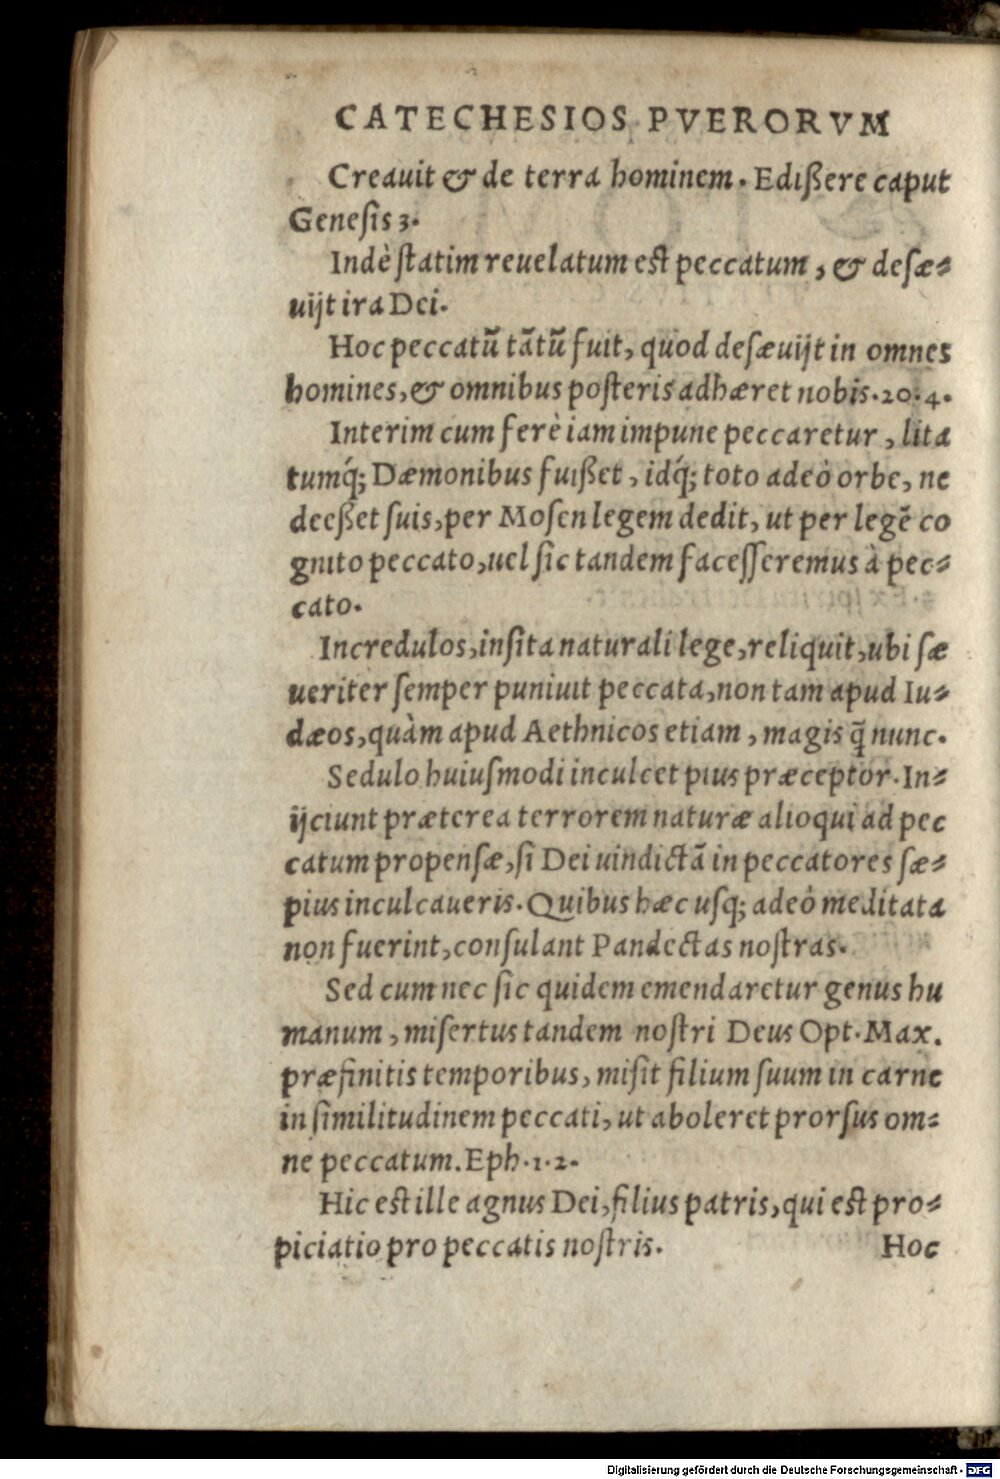 CATECHESIOS PVERORVM
Creauit & de terra hominem. Edißere caput
Genesis 3.
Indè statim reuelatum est peccatum, & desæ-
uijt ira Dei.
Hoc peccatũ tãtũ fuit, quòd desæuijt in omnes
homines, & omnibus posteris adhæret nobis. 20. 4.
Interim cum ferè iam impune peccaretur, lita
tumq́; Dæmonibus fuißet, idq́; toto adeò orbe, ne
deeßet suis, per Mosen legem dedit, ut per legẽ co
gnito peccato, uel sic tandem facesseremus à pec-
cato.
Incredulos, insita naturali lege, reliquit, ubi sæ
ueriter semper puniuit peccata, non tam apud Iu-
dæos, quàm apud Aethnicos etiam, magis q̃ nunc.
Sedulo huiusmodi inculcet pius præceptor. In-
ijciunt præterea terrorem naturæ alioqui ad pec
catum propensæ, si Dei uindictã in peccatores sæ-
pius inculcaueris. Quibus hæc usq; adeò meditata
non fuerint, consulant Pandectas nostras.
Sed cum nec sic quidem emendaretur genus hu
manum, misertus tandem nostri Deus Opt. Max.
præfinitis temporibus, misit filium suum in carne
in similitudinem peccati, ut aboleret prorsus om-
ne peccatum. Eph. 1. 2.
Hic est ille agnus Dei, filius patris, qui est pro-
piciatio pro peccatis nostris. Hoc
Digitalisierung gefördert durch die Deutsche Forschungsgemeinschaft - DFG